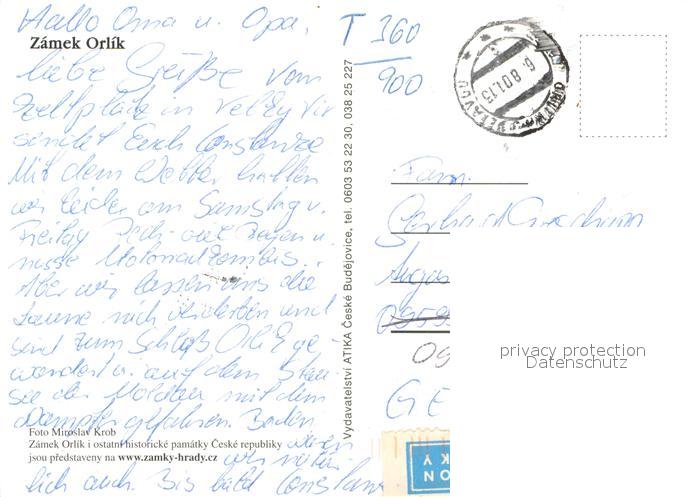 Hallo Oma u. Opa,
Zámek Orlík
liebe Grüße vom
Zeltplatz in Velky Vir
sendet Euch Constanze
Mit dem Wetter hatten
wir leider am Samstag u.
Freitag Pech - viel Regen u.
nasse Motorradkombis.
Aber wir lassen uns die
Laune nich verderben und
sind zum Schloß Orlik ge-
wandert u. auf dem Stau-
see der Moldau mit dem
Dampfer gefahren. Baden
waren
wir natür-
lich auch. Bis bald Constanze
Foto Miroslav Krob
Zámek Orlík i ostatní historické památky České republiky
jsou představeny na www.zamky-hrady.cz
Vydavatelství ATIKA České Budějovice, tel. 0603 53 22 30, 038 25 227
T 360
900
6.8.01.15
Fam.
Gerhard
0959
09
GE
privacy protection
Datenschutz